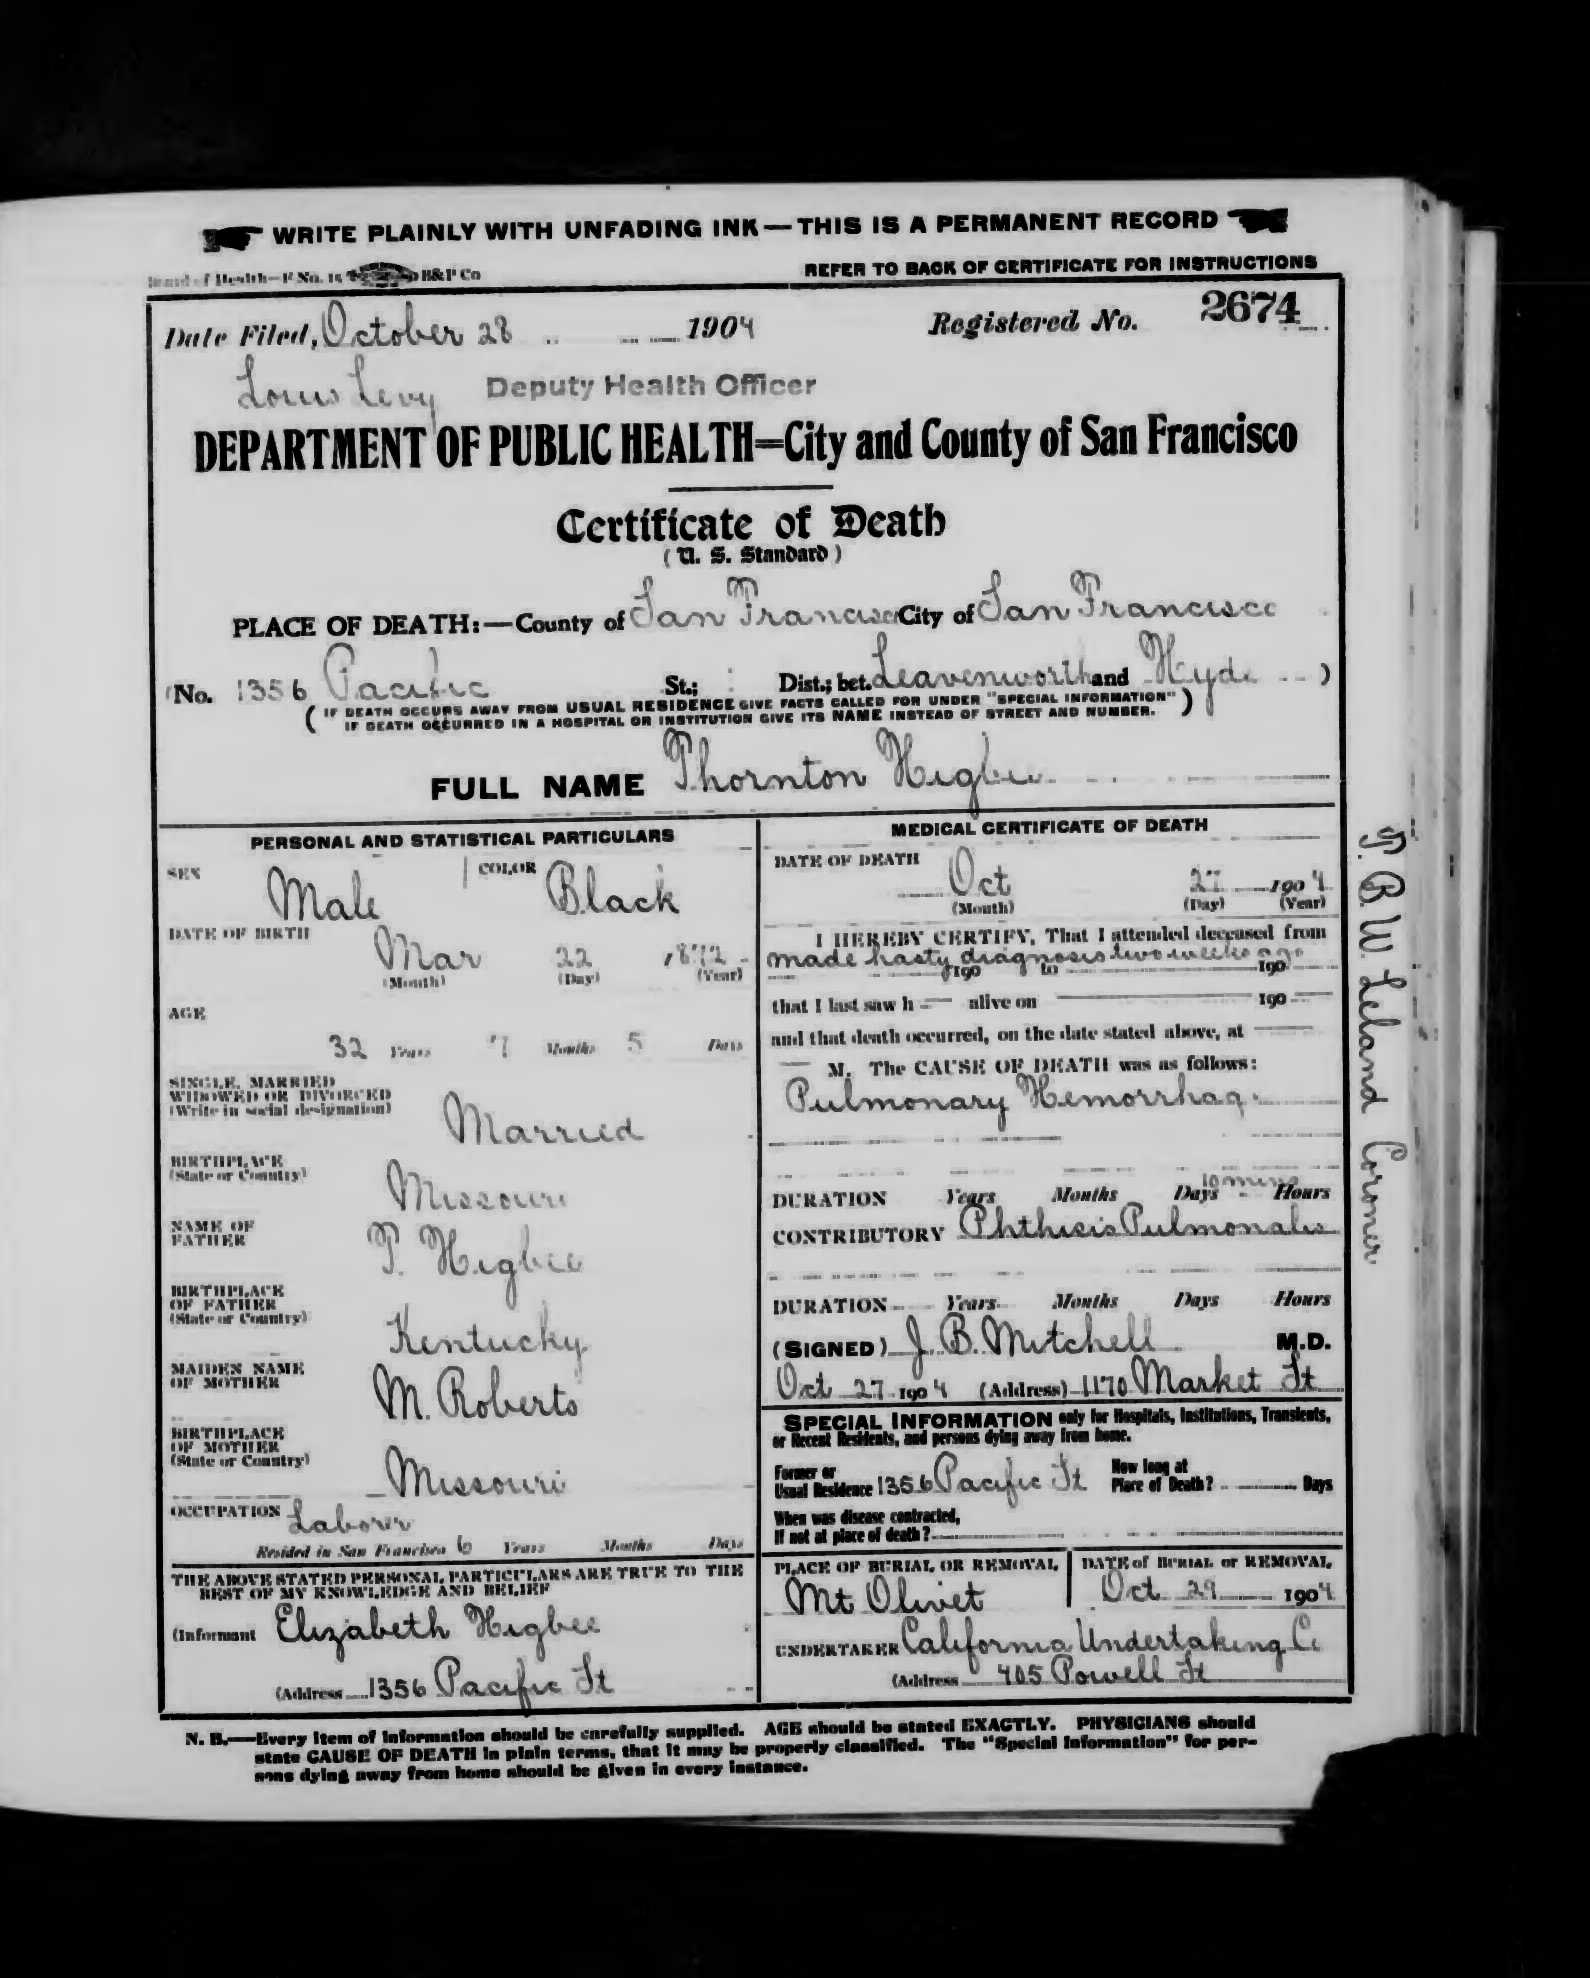 WRITE PLAINLY WITH UNFADING INK — THIS IS A PERMANENT RECORD
Board of Health—F No. 15 H&P Co
REFER TO BACK OF CERTIFICATE FOR INSTRUCTIONS
Date Filed, October 28 1904 Registered No. 2674
Louis Levy Deputy Health Officer
DEPARTMENT OF PUBLIC HEALTH=City and County of San Francisco
Certificate of Death
(U. S. Standard)
PLACE OF DEATH:—County of San Francisco City of San Francisco
(No. 1356 Pacific St.; Dist.; bet. Leavenworth and Hyde )
( IF DEATH OCCURS AWAY FROM USUAL RESIDENCE GIVE FACTS CALLED FOR UNDER "SPECIAL INFORMATION" )
IF DEATH OCCURRED IN A HOSPITAL OR INSTITUTION GIVE ITS NAME INSTEAD OF STREET AND NUMBER.
FULL NAME Thornton Higbee
PERSONAL AND STATISTICAL PARTICULARS
SEX Male COLOR Black
DATE OF BIRTH Mar 22 1872
(Month) (Day) (Year)
AGE
32 Years 7 Months 5 Days
SINGLE, MARRIED
WIDOWED OR DIVORCED
(Write in social designation)
Married
BIRTHPLACE
(State or Country)
Missouri
NAME OF
FATHER
T. Higbee
BIRTHPLACE
OF FATHER
(State or Country)
Kentucky
MAIDEN NAME
OF MOTHER
M. Roberts
BIRTHPLACE
OF MOTHER
(State or Country)
Missouri
OCCUPATION Laborer
Resided in San Francisco 6 Years Months Days
THE ABOVE STATED PERSONAL PARTICULARS ARE TRUE TO THE
BEST OF MY KNOWLEDGE AND BELIEF
(Informant Elizabeth Higbee
(Address 1356 Pacific St
MEDICAL CERTIFICATE OF DEATH
DATE OF DEATH
Oct 27 1904
(Month) (Day) (Year)
I HEREBY CERTIFY, That I attended deceased from
made hasty diagnosis two weeks ago
190 to 190
that I last saw h alive on 190
and that death occurred, on the date stated above, at
M. The CAUSE OF DEATH was as follows:
Pulmonary Hemorrhage
10 mins
DURATION Years Months Days Hours
CONTRIBUTORY Phthisis Pulmonalis
DURATION Years Months Days Hours
(SIGNED) J. B. Mitchell M.D.
Oct 27 1904 (Address) 1170 Market St
SPECIAL INFORMATION only for Hospitals, Institutions, Transients,
or Recent Residents, and persons dying away from home.
Former or
Usual Residence 1356 Pacific St
How long at
Place of Death? Days
When was disease contracted,
If not at place of death?
PLACE OF BURIAL OR REMOVAL
Mt Olivet
DATE of BURIAL or REMOVAL
Oct 29 1904
UNDERTAKER California Undertaking Co
(Address 405 Powell St
N. B.—Every item of information should be carefully supplied. AGE should be stated EXACTLY. PHYSICIANS should
state CAUSE OF DEATH in plain terms, that it may be properly classified. The "Special Information" for per-
sons dying away from home should be given in every instance.
T. B. W. Leland Coroner